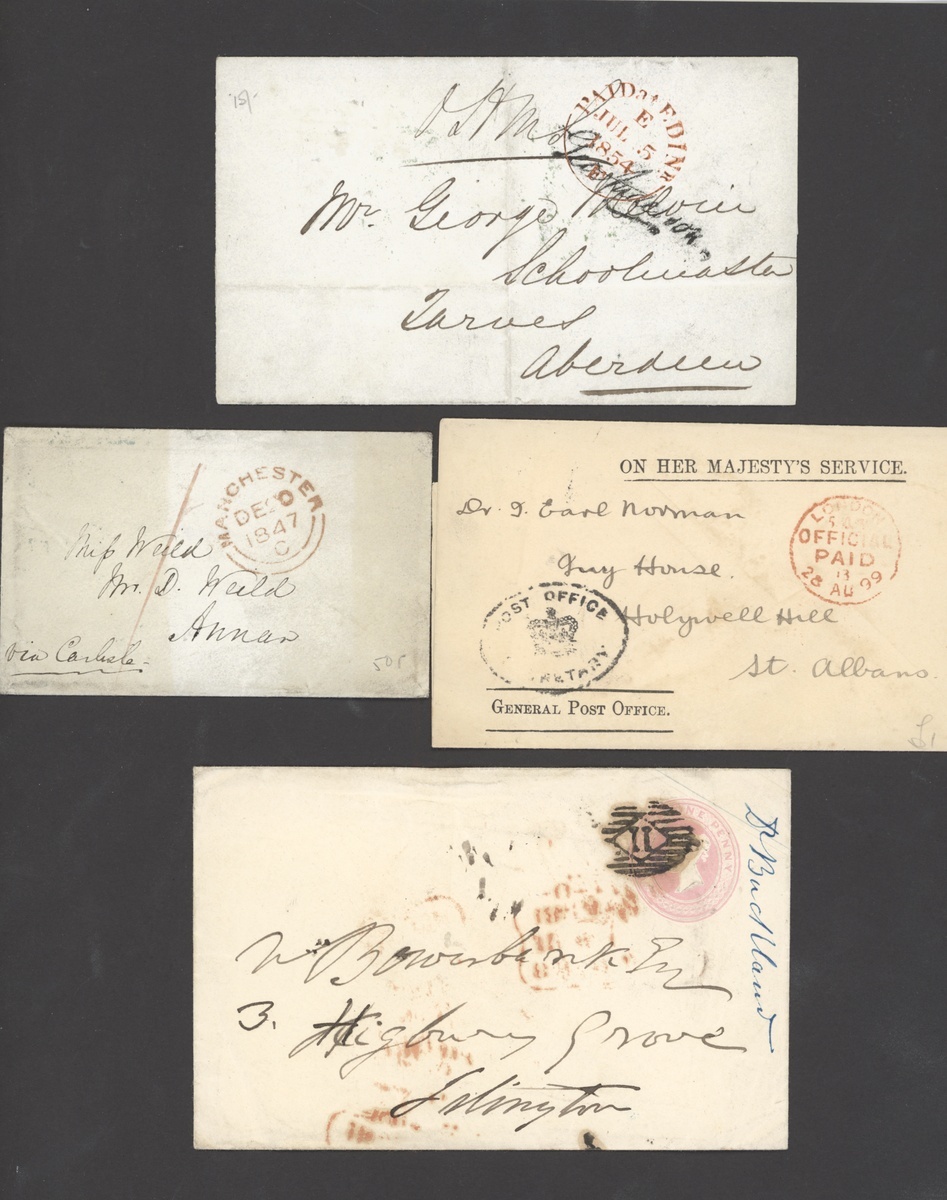 15/-
O H M S
PAID at EDINR
E
JUL 5
1854
Mr. George Melvin
Schoolmaster
Tarves
Aberdeen
MANCHESTER
DE 20
1847
C
Miss Weild
Mr. D. Weild
Annan
via Carlisle
50s
ON HER MAJESTY'S SERVICE.
LONDON
OFFICIAL
PAID
13
28 AU 99
Dr. J. Earl Norman
Guy House.
Holywell Hill
St. Albans.
POST OFFICE
GENERAL POST OFFICE.
£1
11
ONE PENNY
Dr Buckland
W Bowerbank Esq
3. Highbury Grove
Islington